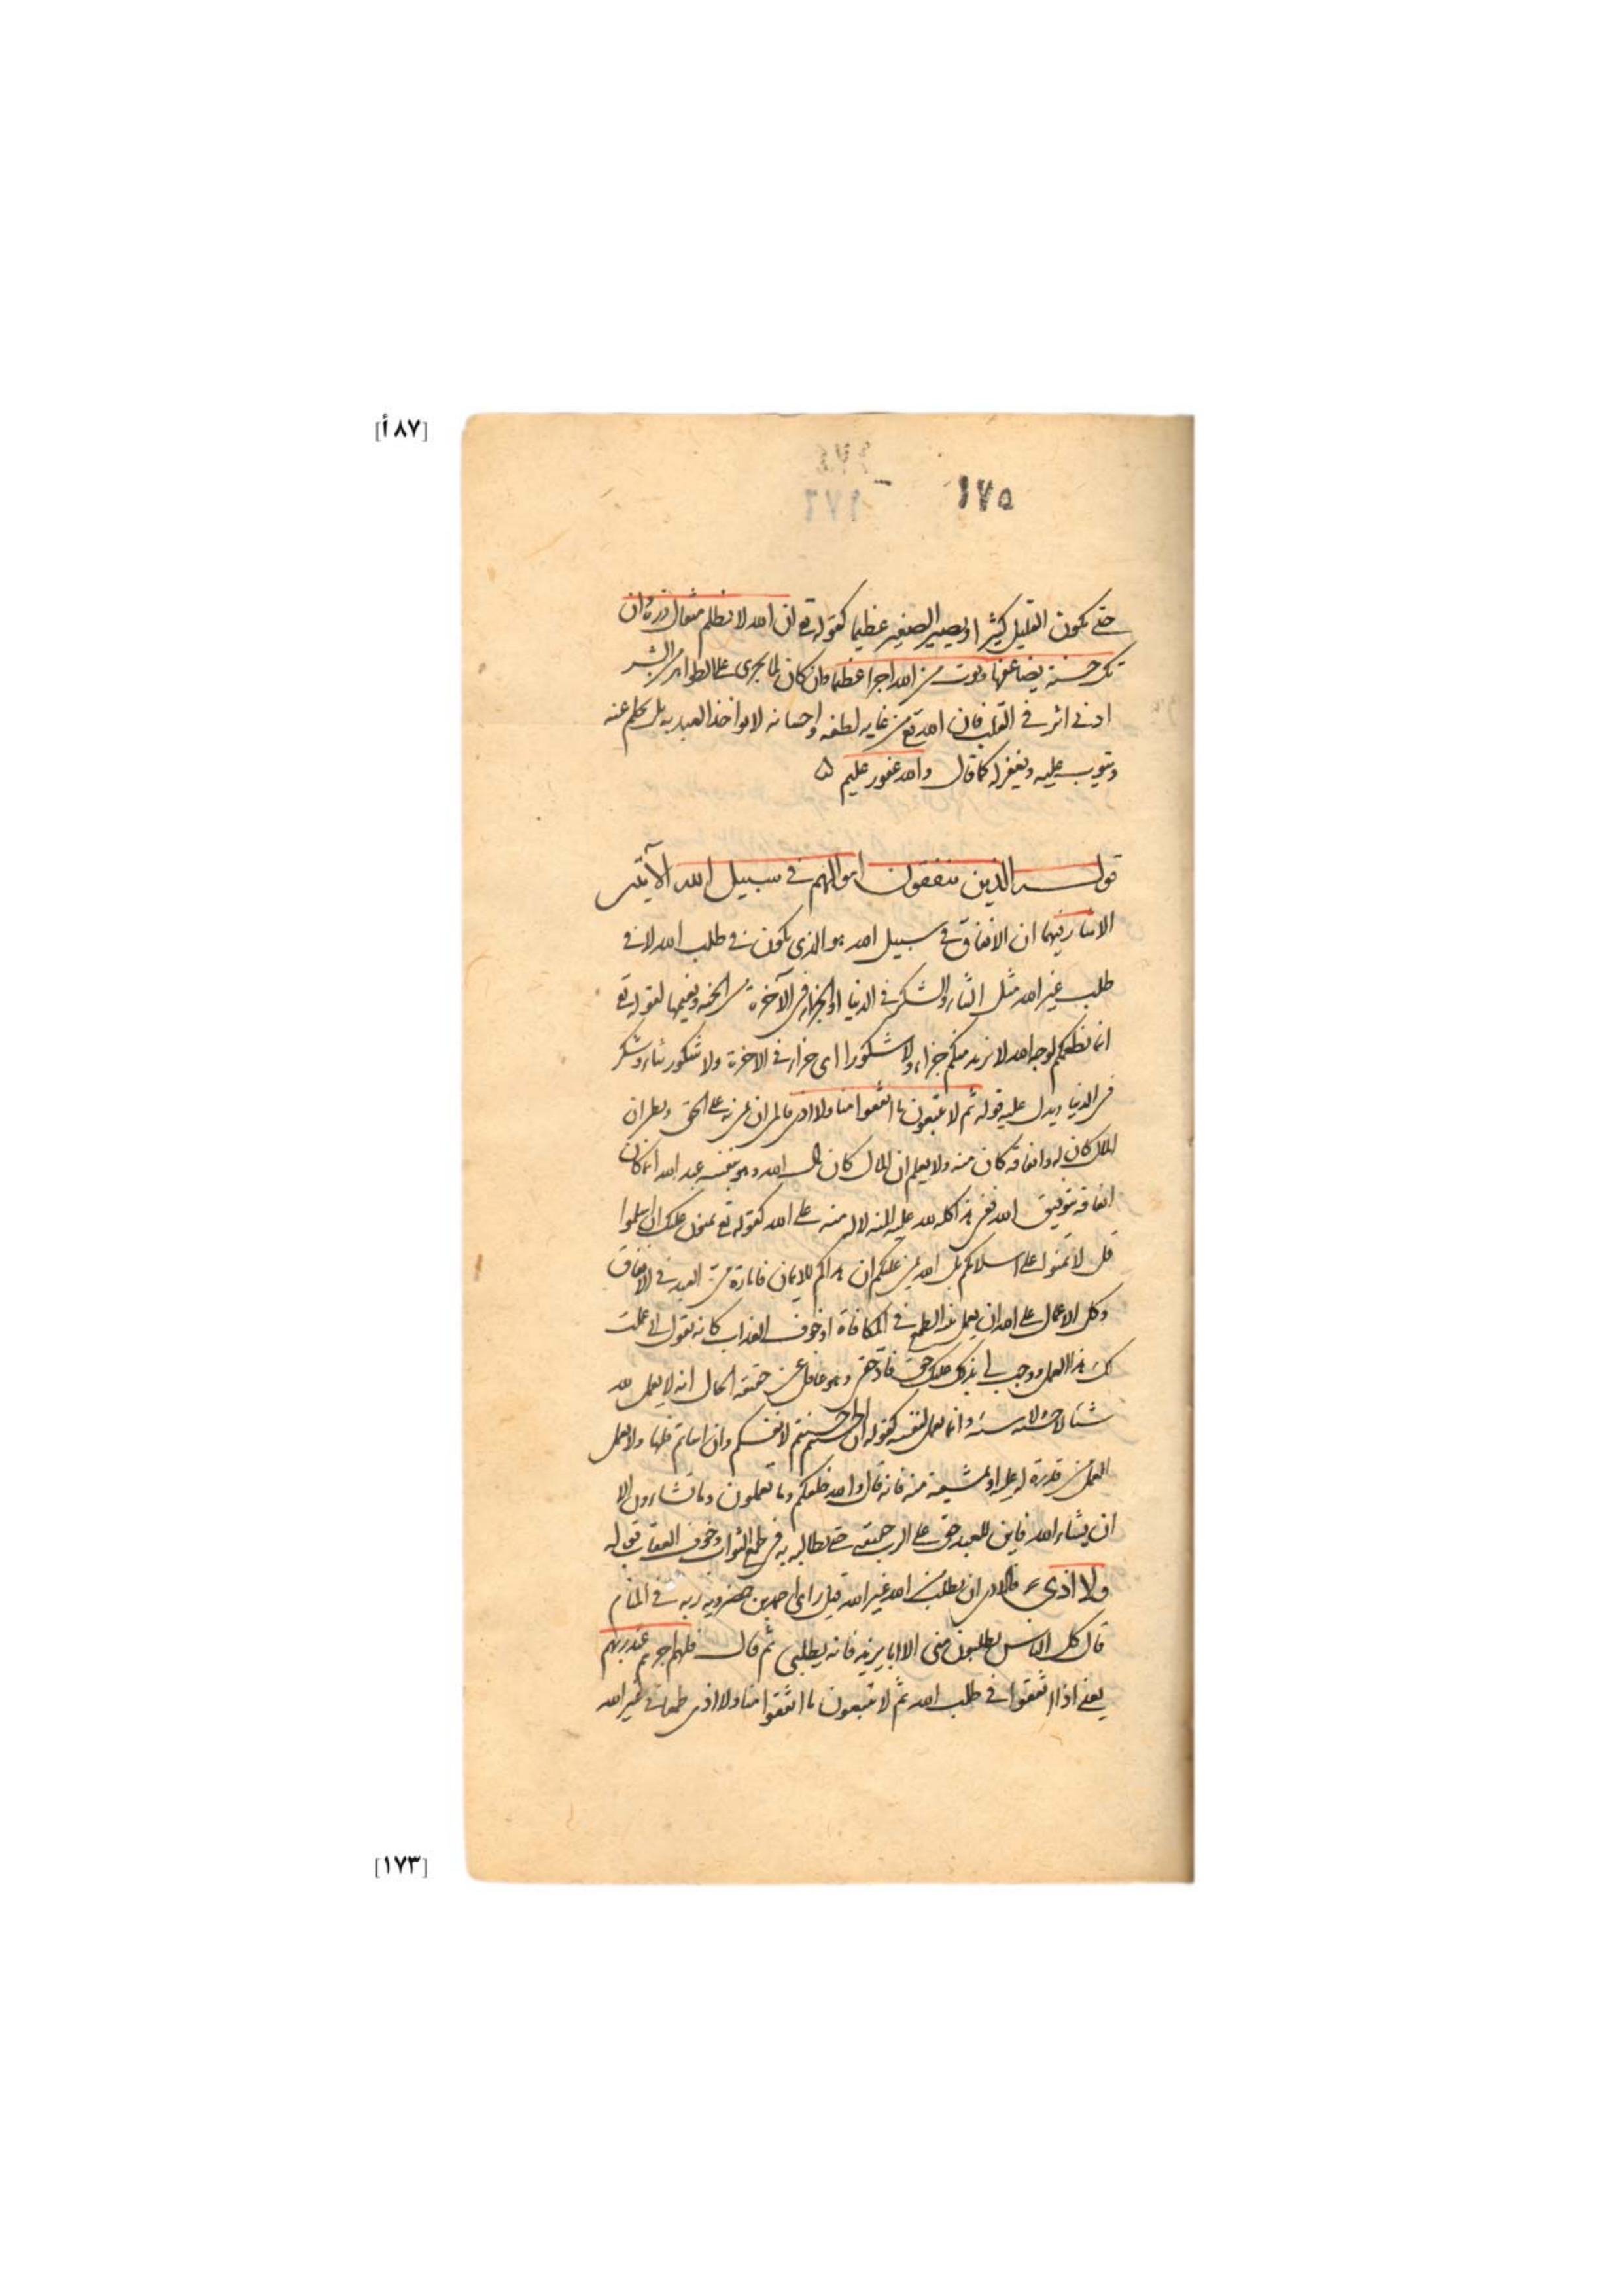 [٨٧أ]
١٧٥
حتى يكون القليل كثيرا او يصير الصغير عظيما كقوله تع ان الله لا يظلم مثقال ذرة وان
تك حسنة يضاعفها ويوت من لدنه اجرا عظيما وان كان لما يجرى على الظواهر من البشر
ادنى اثر فى القلب فان الله تع من غاية لطفه واحسانه لا يواخذ العبد به بل يحلم عنه
ويتوب عليه ويغفر له كما قال والله غفور حليم
قوله الذين ينفقون اموالهم فى سبيل الله الآيتين
الاشارة فيهما ان الانفاق فى سبيل الله هو الذى يكون فى طلب الله لا فى
طلب غير الله مثل الثناء والشكر فى الدنيا او الجزاء فى الآخرة من الجنة ونعيمها لقوله تع
انما نطعمكم لوجه الله لا نريد منكم جزاء ولا شكورا اى جزاء فى الاخرة ولا شكور ثناء وشكر
فى الدنيا ويدل عليه قوله ثم لا يتبعون ما انفقوا منا ولا اذى فالمن ان يمن به على الحق ويظن ان
المال كان له وانفاقه كان منه ولا يعلم ان المال كان مال الله وهو بنفسه عبد الله انما كان
انفاقه بتوفيق الله ففى هذا كله لله عليه المنة لا له منة على الله كقوله تع يمنون عليك ان اسلموا
قل لا تمنوا على اسلامكم بل الله يمن عليكم ان هداكم للايمان فامارة منة العبد فى الانفاق
وكل الاعمال على الله ان يعمل عند الطمع فى المكافاة او خوف العذاب كانه يقول انى عملت
لك هذا العمل ووجب لى بذلك عليك حق فاد حقى وهو غافل عن حقيقة الحال انه لا يعمل لله
شيئا لا حسنة ولا سيئة وانما يعمل لنفسه كقوله ان احسنتم احسنتم لانفسكم وان اساتم فلها ولا يعمل
العمل من قدرة له عليه او بمشيئة منه فانه قال والله خلقكم وما تعملون وما تشاءون الا
ان يشاء الله فاين للعبد حق على الرب حقيقة حتى يطالبه به فى طمع الثواب وخوف العقاب قوله
ولا اذى فالاذى ان يطلب من الله غير الله قيل راى احمد بن خضرويه ربه فى المنام
قال كل الناس يطلبون منى الا ابا يزيد فانه يطلبنى ثم قال فلهم اجرهم عند ربهم
يعنى اذا انفقوا فى طلب الله ثم لا يتبعون ما انفقوا منا ولا اذى طمعا فى غير الله
[١٧٣]